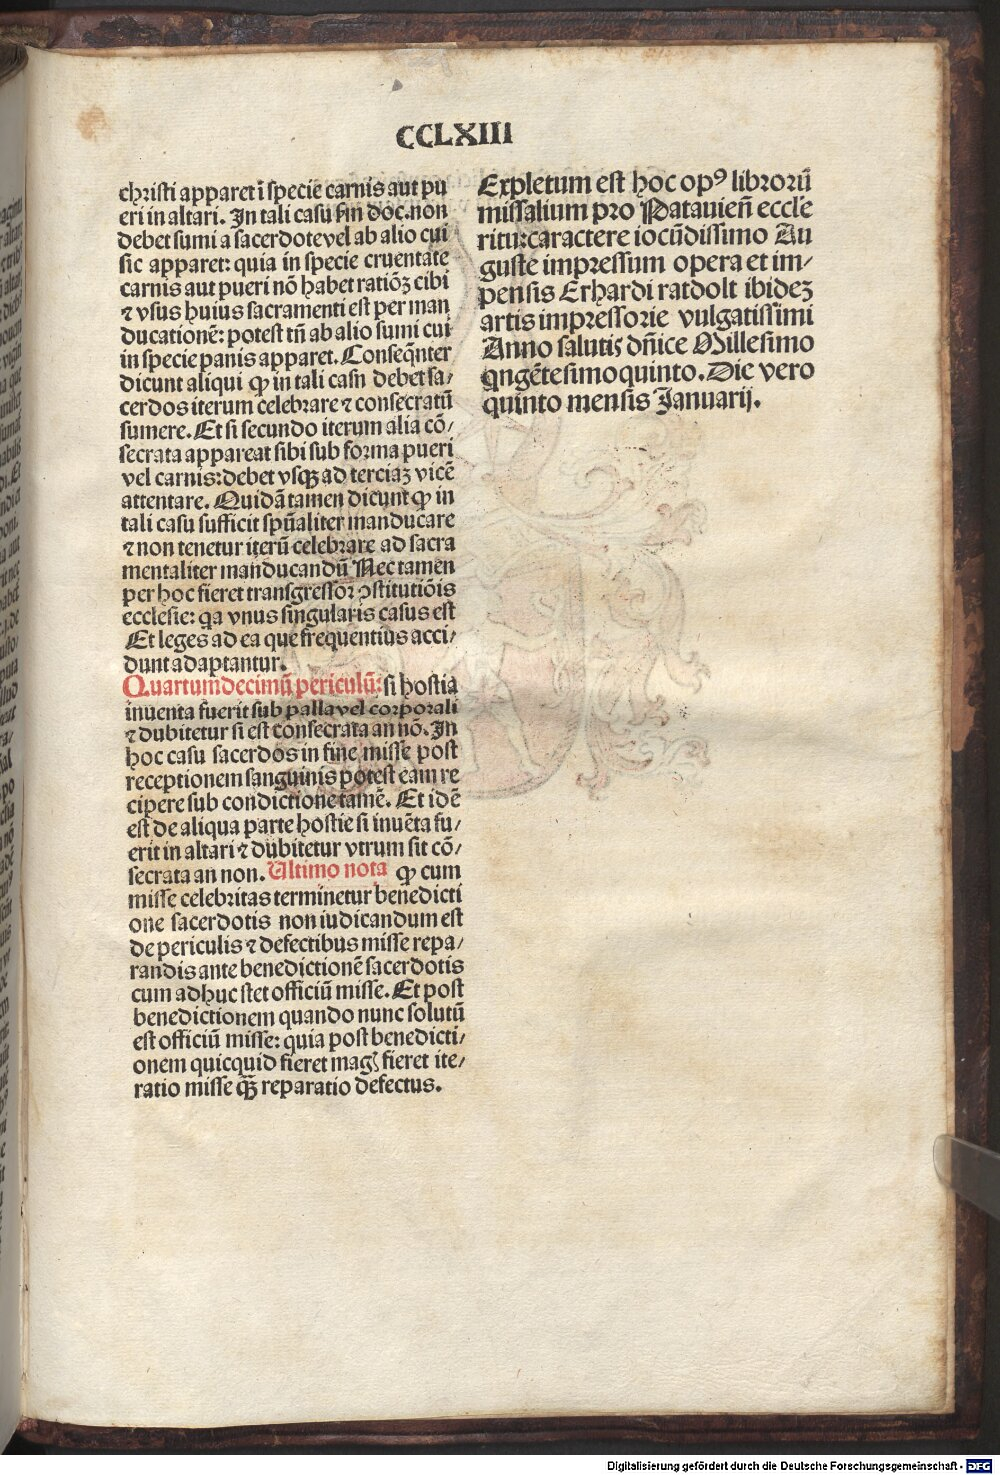 CCLXIII
christi apparet ī specie carnis aut pu
eri in altari. In tali casu ẜm doc. non
debet sumi a sacerdote vel ab alio cui
sic apparet: quia in specie cruentate
carnis aut pueri nō habet ratiōꝫ cibi
⁊ vsus huius sacramenti est per man
ducationē: potest tñ ab alio sumi cui
in specie panis apparet. Conseq̄nter
dicunt aliqui ꝙ in tali casu debet sa/
cerdos iterum celebrare ⁊ consecratū
sumere. Et si secundo iterum alia cō/
secrata appareat sibi sub forma pueri
vel carnis: debet vsqꝫ ad terciaꝫ vicē
attentare. Quidā tamen dicunt ꝙ in
tali casu sufficit spūaliter manducare
⁊ non tenetur iterū celebrare ad sacra
mentaliter manducandū Nec tamen
per hoc fieret transgressor ꝯstitutiōis
ecclesie: qa vnus singularis casus est
Et leges ad ea que frequentius acci/
dunt adaptantur.
Quartumdecimū periculū: si hostia
inuenta fuerit sub palla vel corporali
⁊ dubitetur si est consecrata an nō. In
hoc casu sacerdos in fine misse post
receptionem sanguinis potest eam re
cipere sub condictione tamē. Et idē
est de aliqua parte hostie si inuēta fu/
erit in altari ⁊ dubitetur vtrum sit cō/
secrata an non. Ultimo nota ꝙ cum
misse celebritas terminetur benedicti
one sacerdotis non iudicandum est
de periculis ⁊ defectibus misse repa/
randis ante benedictionē sacerdotis
cum adhuc stet officiū misse. Et post
benedictionem quando nunc solutū
est officiū misse: quia post benedicti/
onem quicquid fieret magꝭ fieret ite/
ratio misse qꝫ̄ reparatio defectus.
Expletum est hoc opꝰ librorū
missalium pro Patauieñ eccle
ritu: caractere iocūdissimo Au
guste impressum opera et im/
pensis Erhardi ratdolt ibideꝫ
artis impressorie vulgatissimi
Anno salutis dñice Millesimo
qngētesimoquinto. Die vero
quinto mensis Januarij.
Digitalisierung gefördert durch die Deutsche Forschungsgemeinschaft - DFG